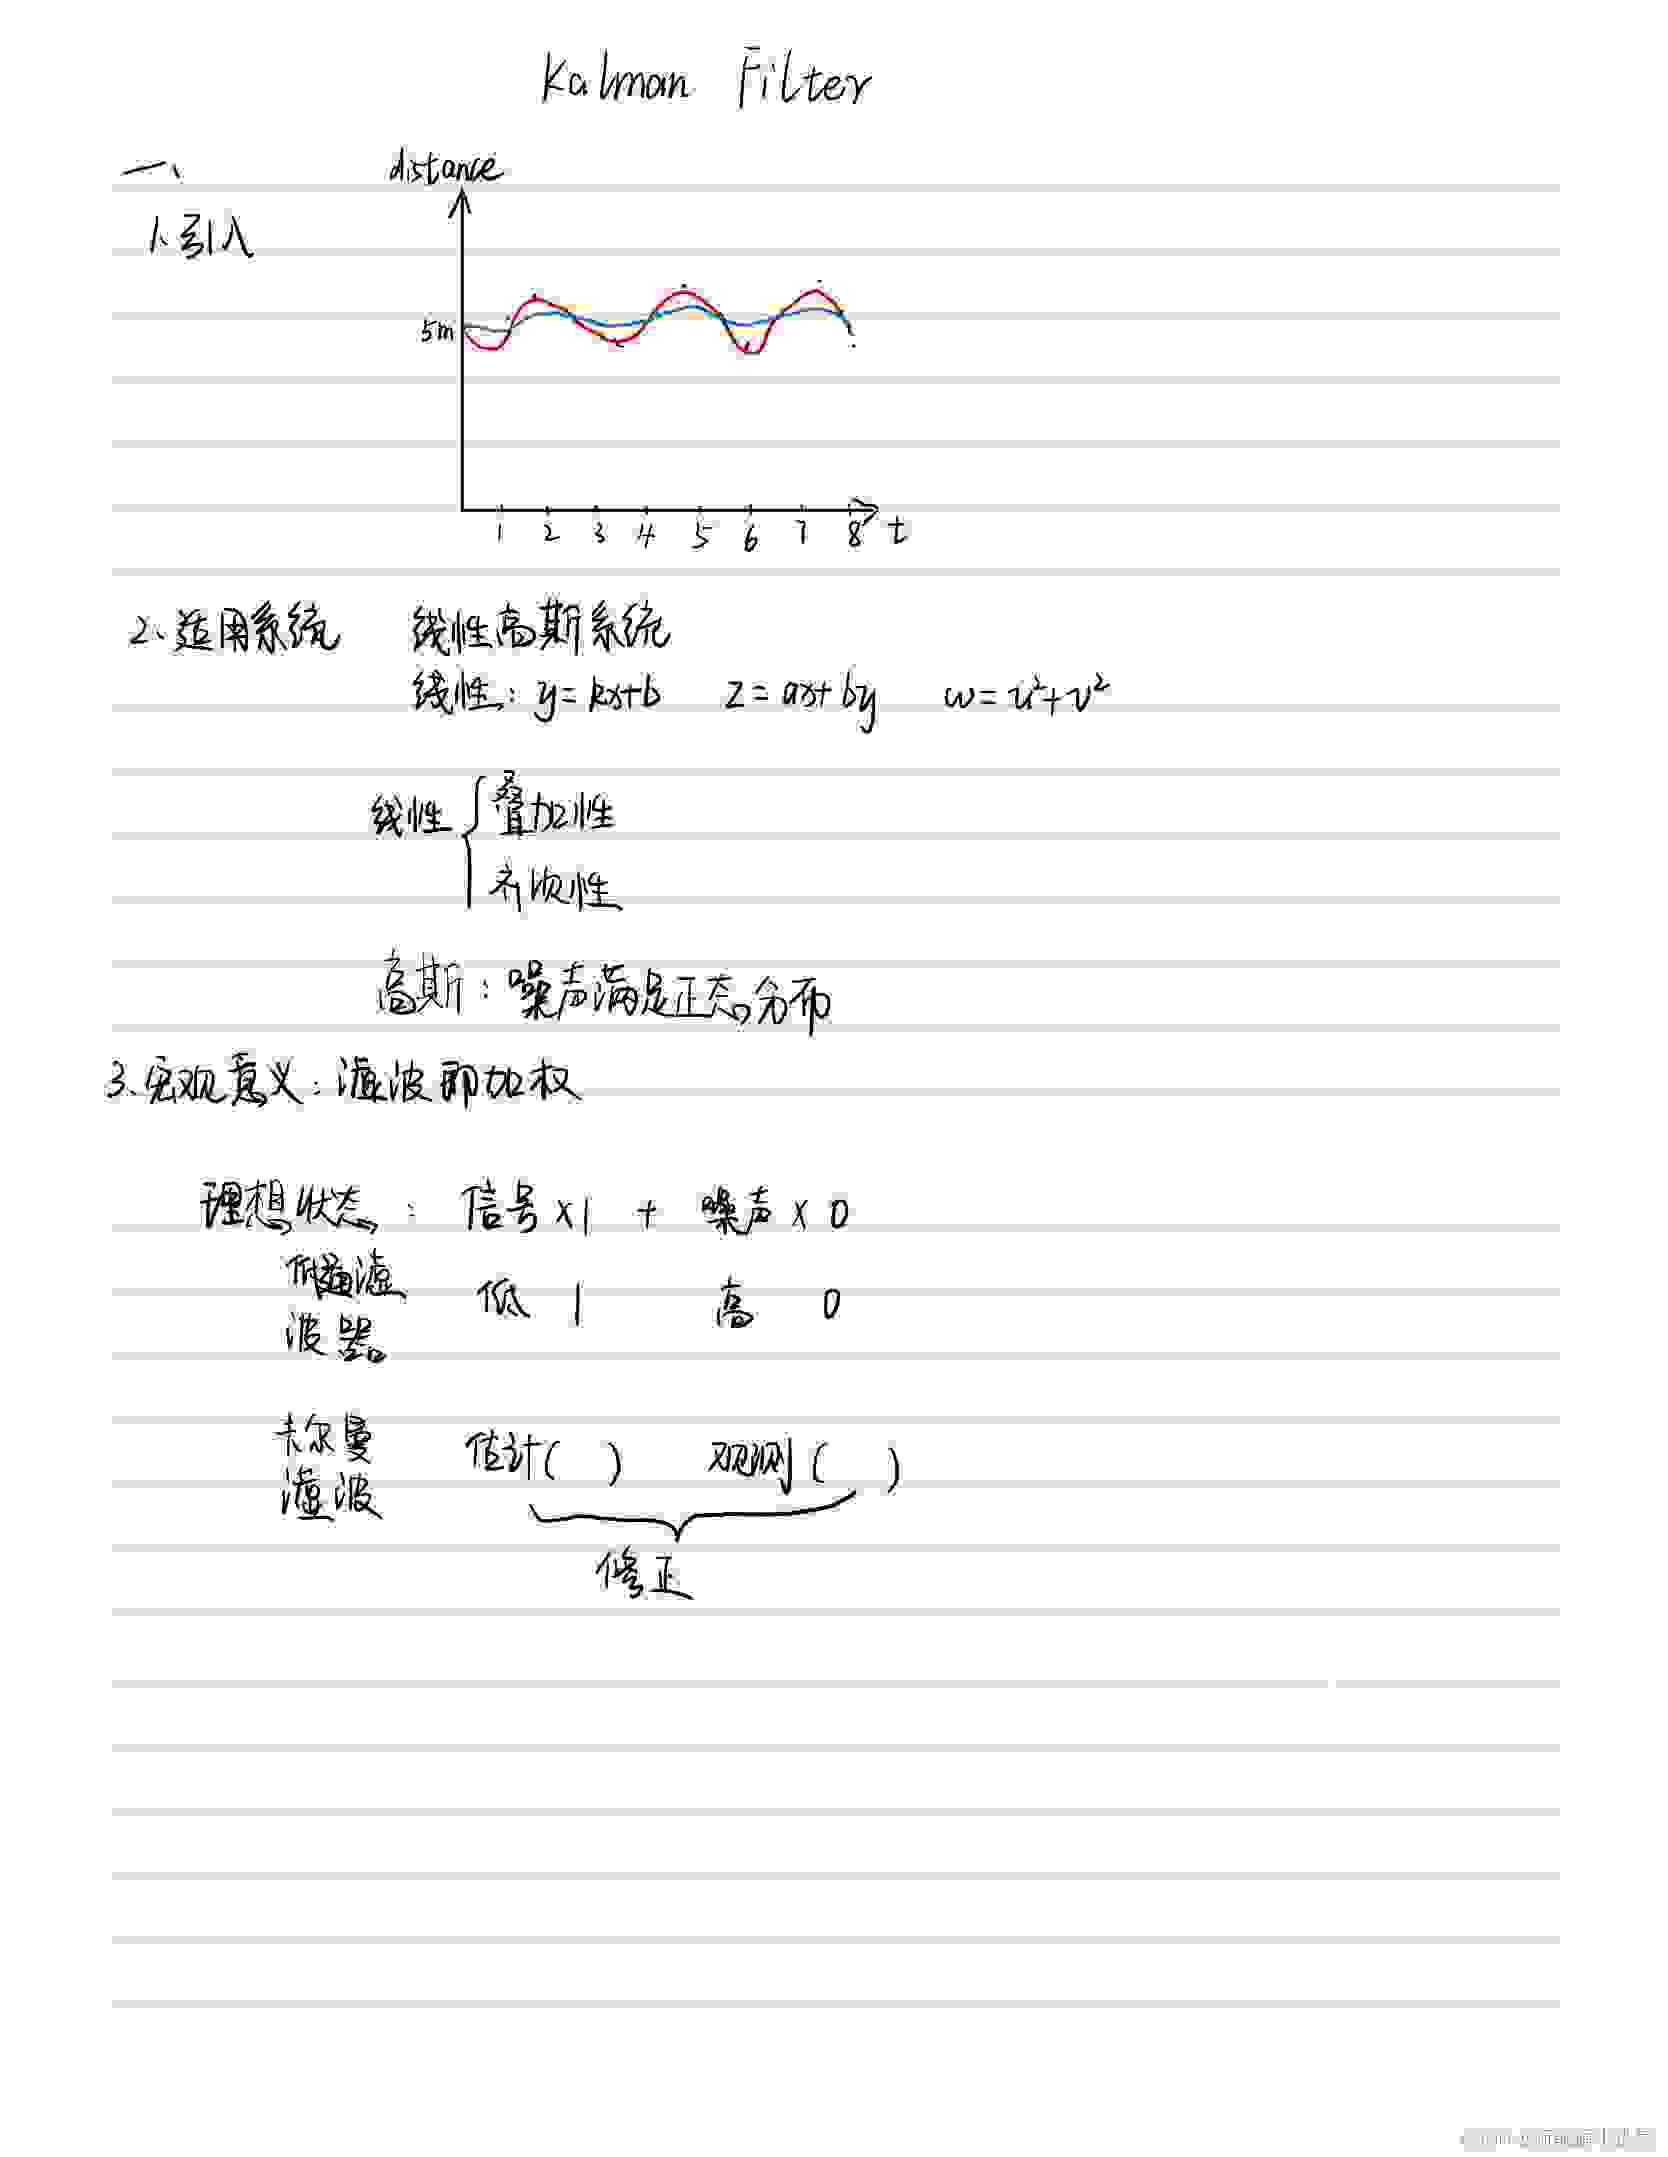 Kalman Filter
一、
distance
1、引入
5m
1 2 3 4 5 6 7 8 t
2、适用系统 线性高斯系统
线性：y=kx+b z=ax+by w=u²+v²
线性 { 叠加性
齐次性
高斯：噪声满足正态分布
3、宏观意义：滤波即加权
理想状态： 信号×1 + 噪声×0
低通滤 低 1 高 0
波器
卡尔曼 估计( ) 观测( )
滤波
修正